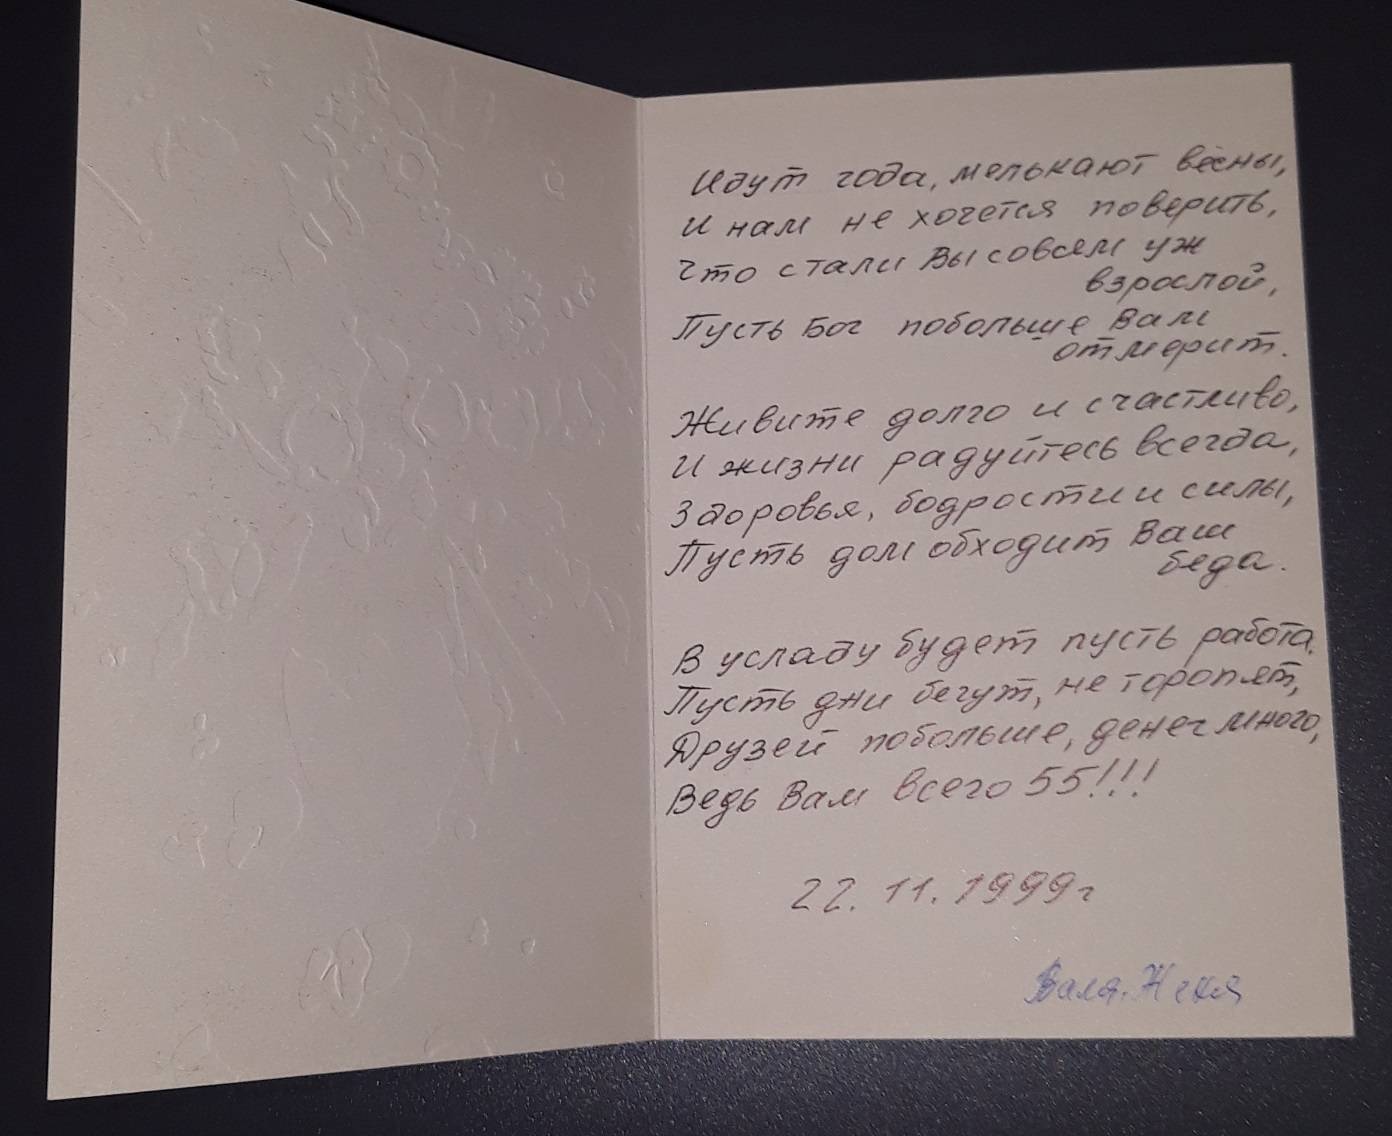 Идут года, мелькают вёсны,
И нам не хочется поверить,
Что стали Вы совсем уж
взрослой,
Пусть Бог побольше Вам
отмерит.
Живите долго и счастливо,
И жизни радуйтесь всегда,
Здоровья, бодрости и силы,
Пусть дом обходит Ваш
беда.
В усладу будет пусть работа.
Пусть дни бегут, не торопят,
Друзей побольше, денег много,
Ведь Вам всего 55!!!
22.11.1999г
Валя. Женя